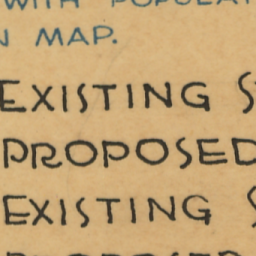 WITH POPULAT
N MAP.
EXISTING S
PROPOSED
EXISTING S
PROPOSED